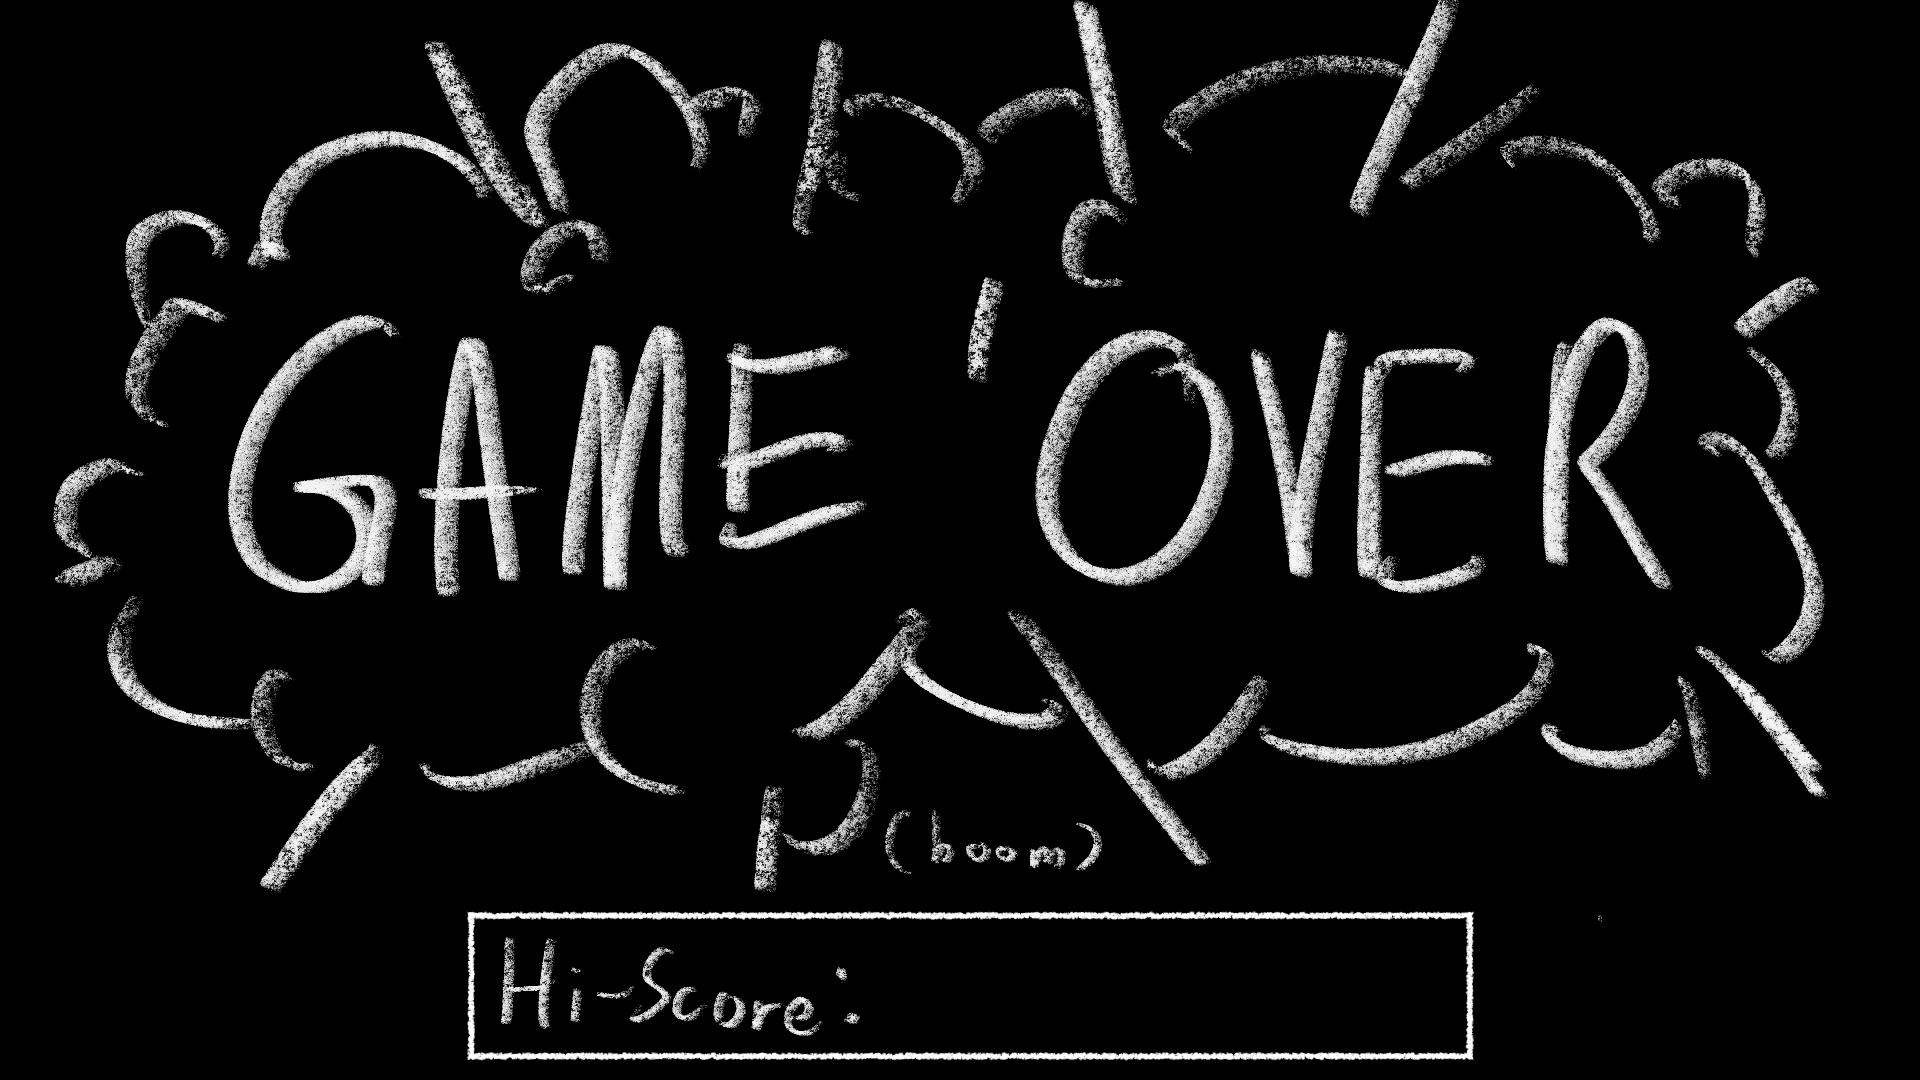 GAME OVER
(boom)
Hi-Score: